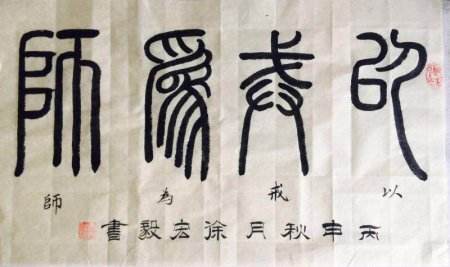 以戒為師
以戒為師
丙申秋月徐宏毅書